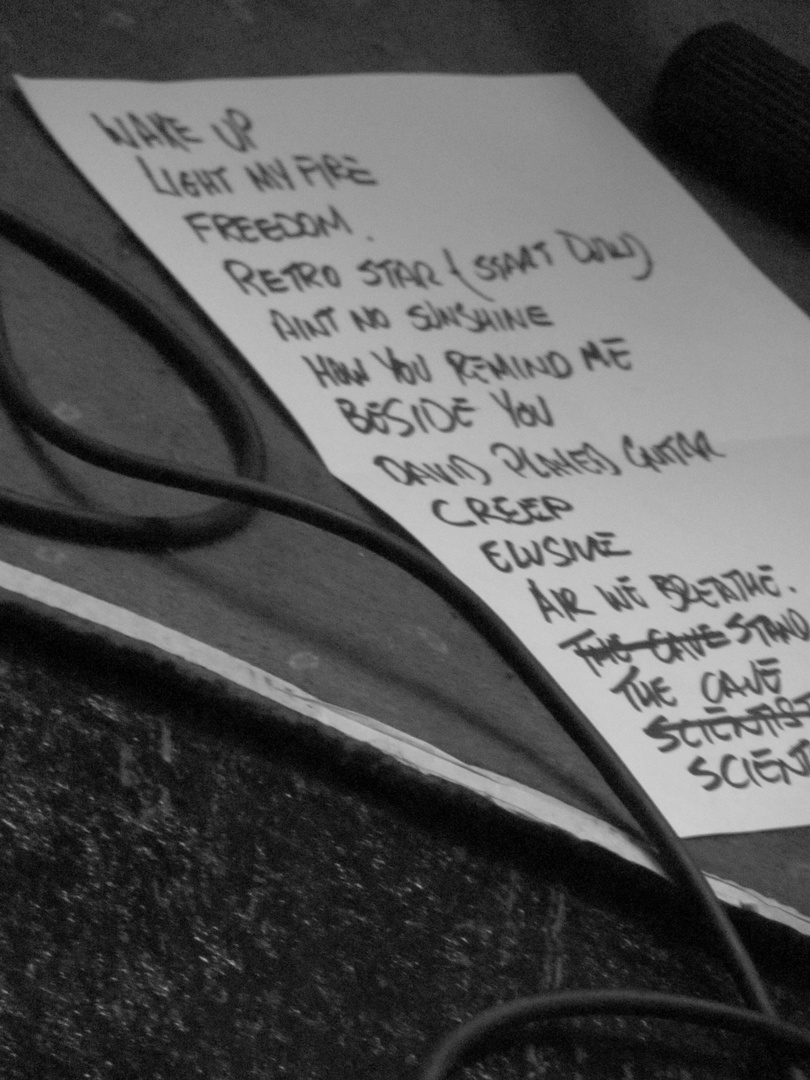 WAKE UP
LIGHT MY FIRE
FREEDOM.
RETRO STAR (START DOWN)
AINT NO SUNSHINE
HOW YOU REMIND ME
BESIDE YOU
DAVID PLAYED GUITAR
CREEP
ELUSIVE
AIR WE BREATHE.
THE CAVE STAND
THE CAVE
SCIENTIST
SCIENT